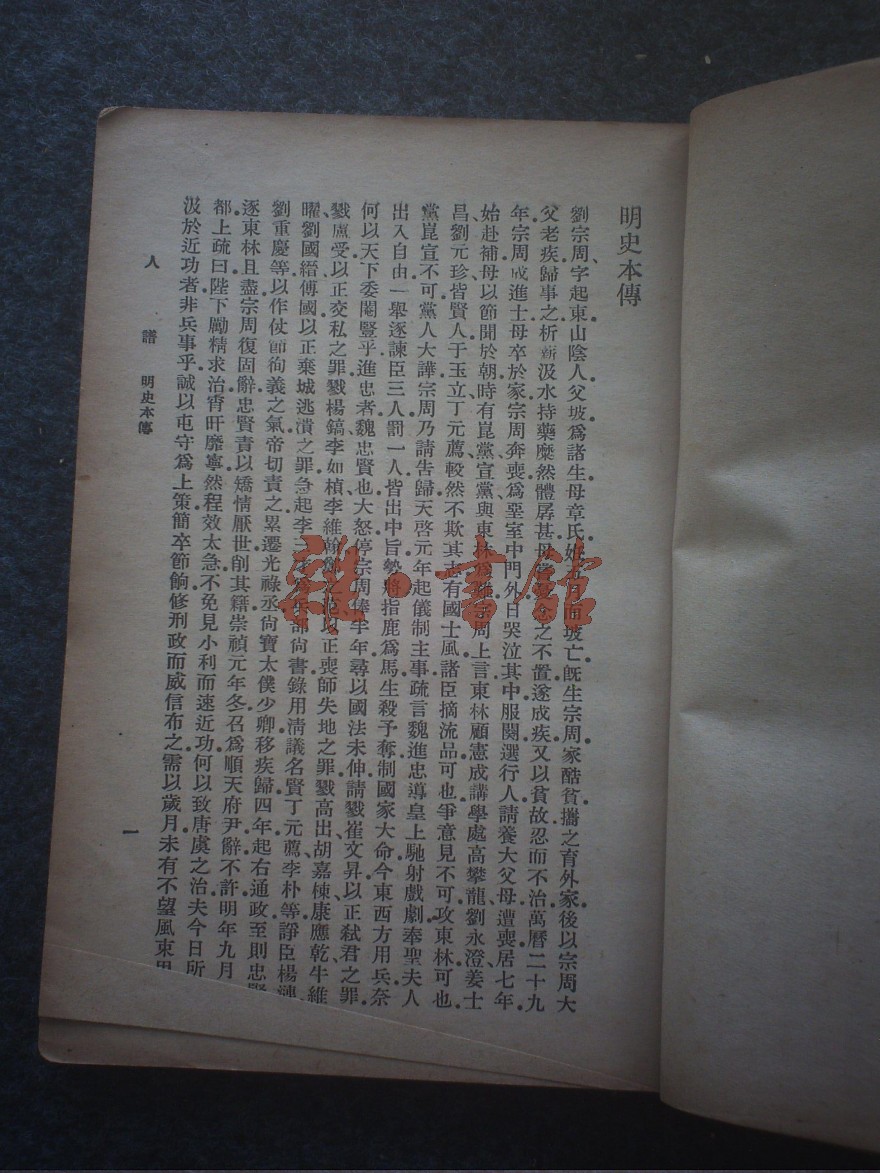 明史本傳
劉宗周、字起東山陰人。父坡爲諸生母章氏妊五月而坡亡。旣生宗周家酷貧攜之育外家後以宗周大
父老疾歸事之析薪汲水持藥糜。然體孱甚母嘗憂念之不置遂成疾又以貧故忍而不治萬曆二十九
年宗周成進士母卒於家宗周奔喪爲堊室中門外日哭泣其中服闋選行人請養大父母遭喪居七年
始赴補母以節聞於朝時有崑黨宣黨與東林爲難宗周上言東林顧憲成講學處高攀龍劉永澄姜士
昌劉元珍皆賢人于玉立丁元薦較然不欺其志有國士風諸臣摘流品可也爭意見不可攻東林可也
黨崑宣不可黨人大譁宗周乃請告歸天啓元年起儀制主事疏言魏進忠導皇上馳射戲劇奉聖夫人
出入自由一舉逐諫臣三人罰一人皆出中旨勢將指鹿爲馬生殺予奪制國家大命今東西方用兵奈
何以天下委閹豎乎進忠者魏忠賢也大怒停宗周俸半年尋以國法未伸請戮崔文昇以正弑君之罪
戮盧受以正交私之罪戮楊鎬李如楨李維翰鄭之范以正喪師失地之罪戮高出胡嘉棟康應乾牛維
曜劉國縉傅國以正棄城逃潰之罪急起李三才爲兵部尙書錄用淸議名賢丁元薦李朴等諍臣楊漣
劉重慶等以作仗節徇義之氣帝切責之累遷光祿丞尙寶太僕少卿移疾歸四年起右通政至則忠賢
逐東林且盡宗周復固辭忠賢責以矯情厭世削其籍崇禎元年冬召爲順天府尹辭不許明年九月
都上疏曰陛下勵精求治宵旰靡寧然程效太急不免見小利而速近功何以致唐虞之治夫今日所
汲於近功者非兵事乎誠以屯守爲上策簡卒節餉修刑政而威信布之需以歲月未有不望風束
人譜 明史本傳
一
雜·書館